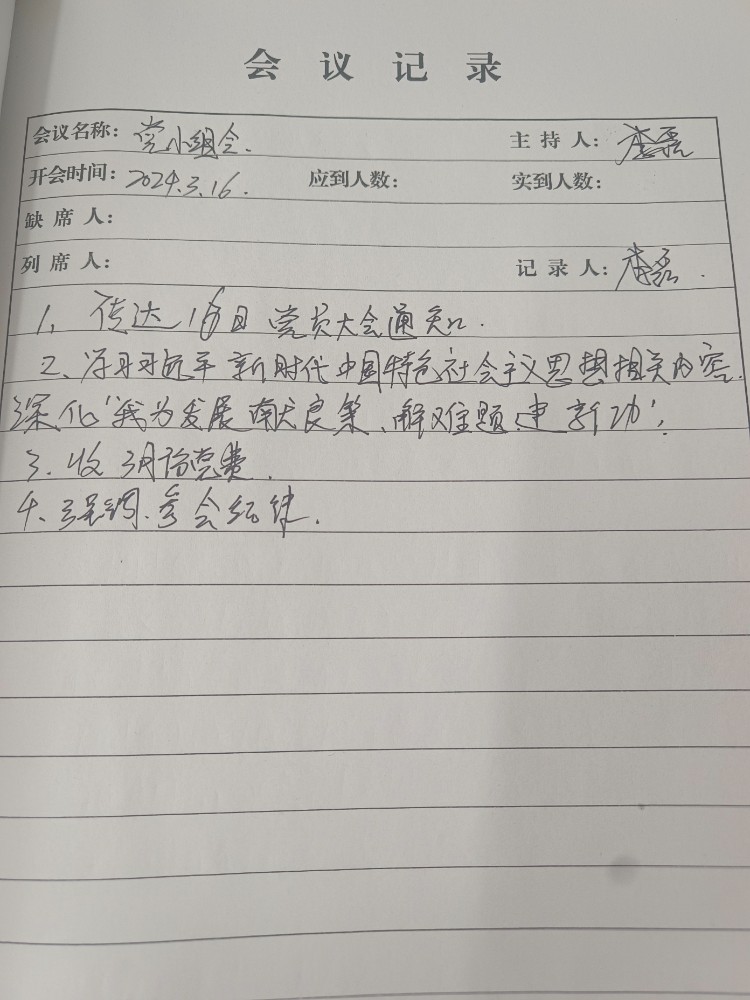 会议记录
会议名称：党小组会. 主持人：李磊
开会时间：2024.3.16. 应到人数： 实到人数：
缺席人：
列席人： 记录人：李磊.
1、传达18日党员大会通知.
2、学习习近平新时代中国特色社会主义思想相关内容.
深化“我为发展献良策、解难题、建新功”.
3、收3月份党费.
4、强调.参会纪律.